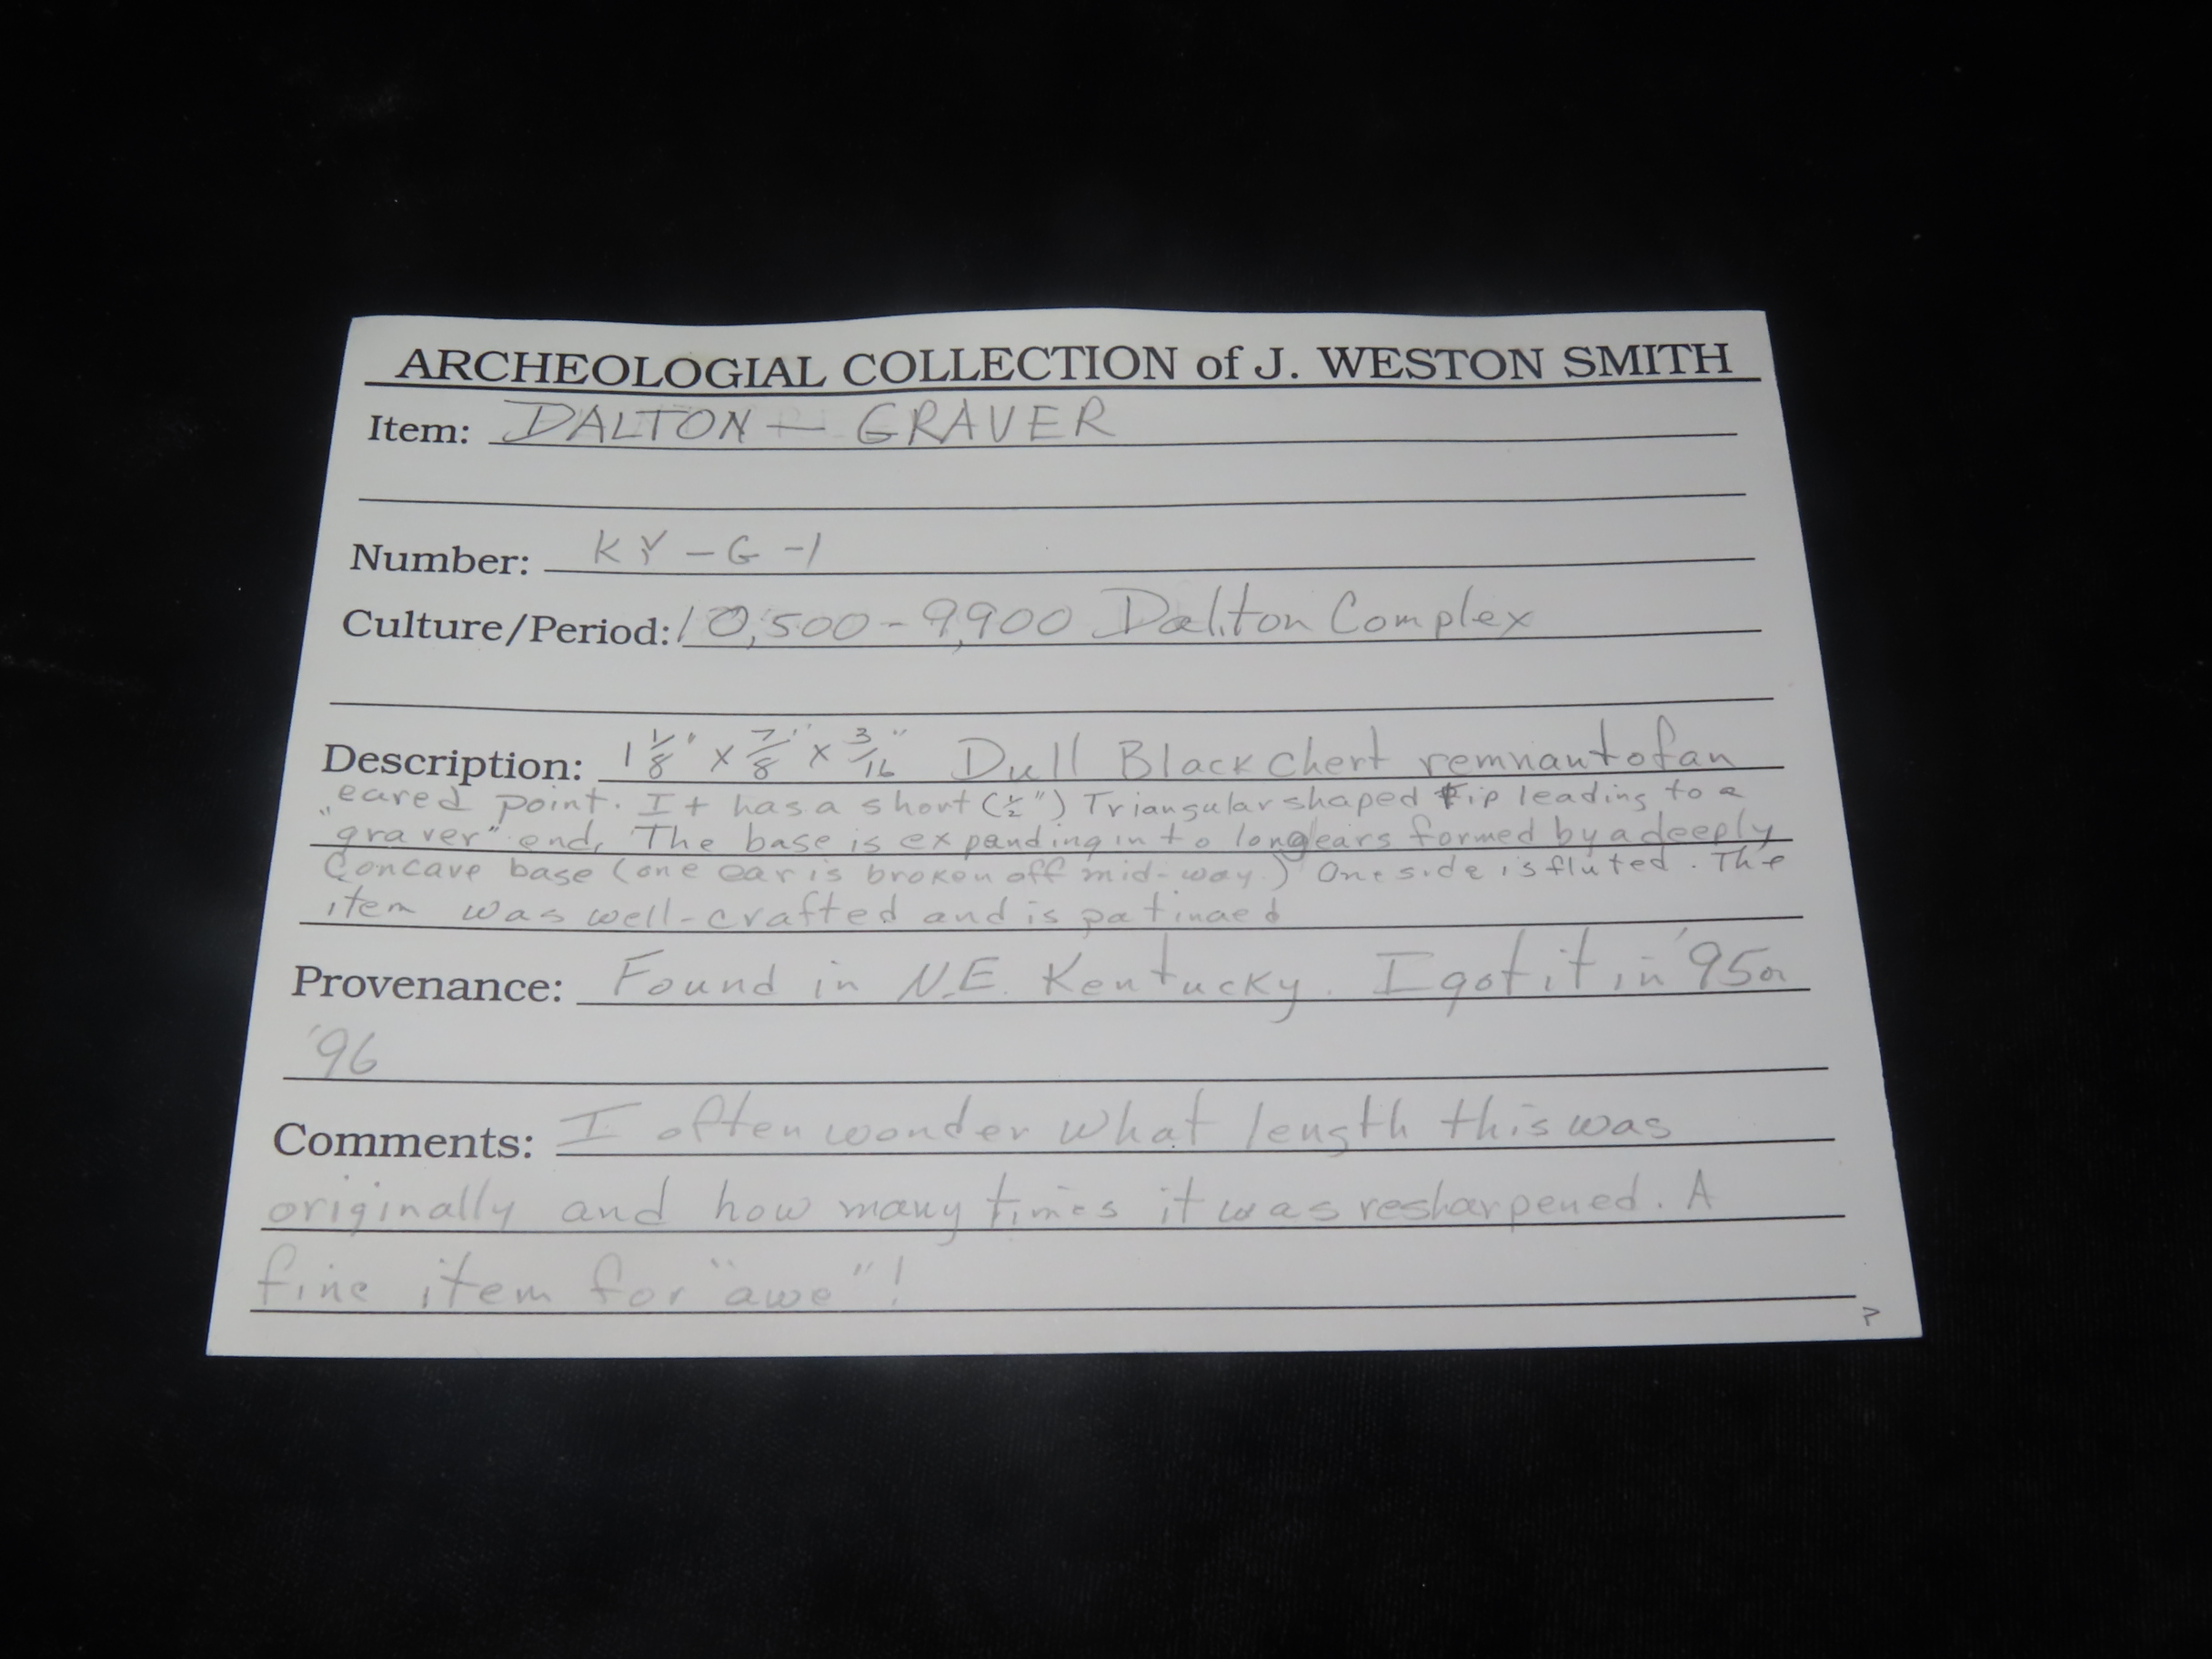 ARCHEOLOGIAL COLLECTION of J. WESTON SMITH
Item: DALTON - GRAVER
Number: KY-G-1
Culture/Period: 10,500-9,900 Dalton Complex
Description: 1 1/8" x 7/8" x 3/16" Dull Black chert remnant of an
"eared point. It has a short (1/2") Triangular shaped tip leading to a
"graver" end. The base is expanding into long ears formed by a deeply
Concave base (one ear is broken off mid-way.) One side is fluted. The
item was well-crafted and is patinaed
Provenance: Found in N.E. Kentucky. I got it in '95 or
'96
Comments: I often wonder what length this was
originally and how many times it was resharpened. A
fine item for "awe"!